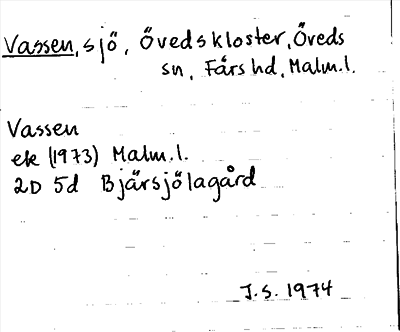 Vassen, sjö, Övedskloster, Öveds
sn, Färs hd, Malm.l.
Vassen
ek (1973) Malm.l.
2D 5d Bjärsjölagård
J.S. 1974